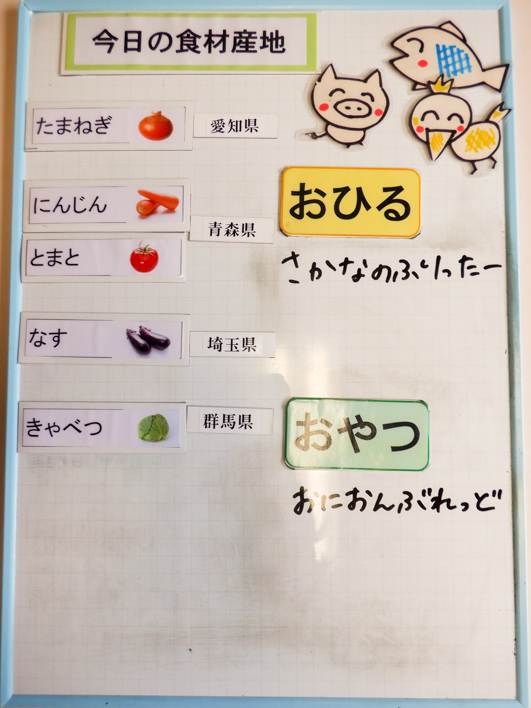 今日の食材産地
たまねぎ 愛知県
にんじん
青森県
とまと
なす 埼玉県
きゃべつ 群馬県
おひる
さかなのふりったー
おやつ
おにおんぶれっど